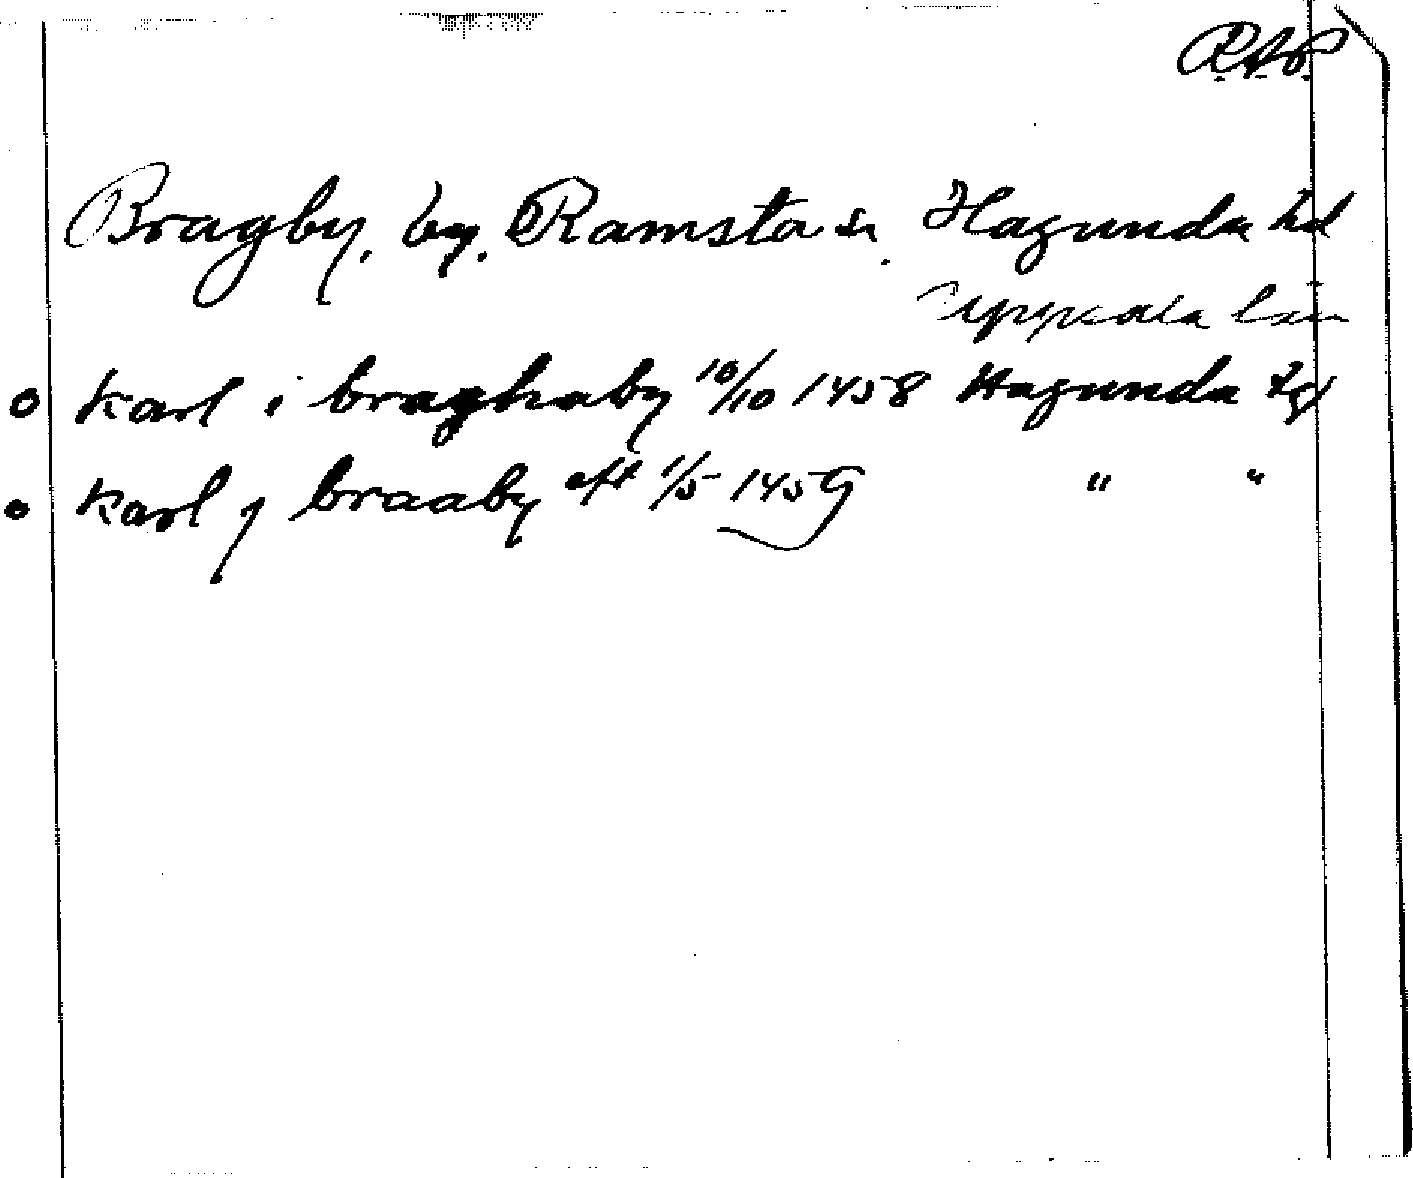 R.A.P.
Bragby, by, Ramsta sn. Hagunda hd
Uppsala län
o Karl i braghaby 10/10 1458 Hagunda
o Karl j braaby oft 1/5 1459 " "